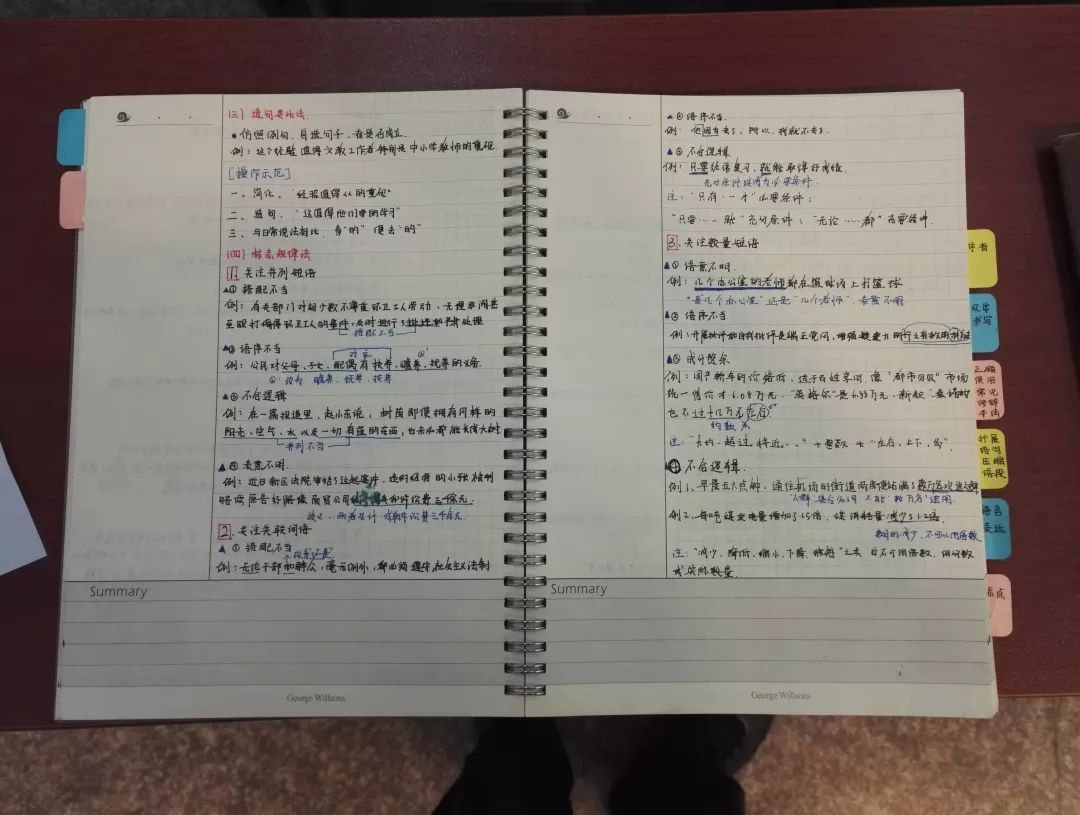 (三) 造句类比法
• 仿照例句, 自造句子, 看是否成立.
例: 这个经验值得文教工作者特别是中小学教师的重视.
[操作示范]
一、简化, "经验值得……的重视"
二、造句, "这值得他们的学习"
三、与日常说法相比, 多"的" 便去"的"
(四) 标志规律法
1. 关注并列短语
▲① 搭配不当
例: 有关部门对极少数不尊重环卫工人劳动, 无理取闹甚
至殴打侮辱环卫工人的事件, 及时进行了批评和严肃处理
搭配不当
▲② 语序不当
对应
例: 公民对父母、子女、配偶有扶养、赡养、抚养的义务.
改为 赡养、抚养、扶养
▲③ 不合逻辑
例: 在一篇报道里, 赵小东说, 树苗即便拥有同样的
阳光、空气、水以及一切有益的东西, 也未必都能长成大树.
并列不当
▲④ 表意不明
例: 近日新区法院审结了这起案件, 违约经营的小张被判
令赔偿原告好路缘商贸公司经济损失和诉讼费三千余元.
歧义, 两者共计 或诉讼费三千余元.
2. 关注关联词语
▲ ① 搭配不当
例: 无论干部和群众, 毫无例外, 都必须遵守社会主义法制
Summary
George Willsons
▲② 语序不当.
例: 他因为去了, 所以, 我就不去了.
▲③ 不合逻辑
例: 只要经常复习, 就能取得好成绩.
充分条件误为必要条件.
注: "只有……才"必要条件;
"只要……就"充分条件; "无论……都"无条件.
3. 关注数量短语
▲① 语意不明.
例: 几个办公室的老师都在篮球场上打篮球
"是几个办公室"还是"几个老师", 表意不明
▲② 语序不当
例: 开展批评和自我批评是端正党风, 增强战斗力的
▲③ 成分赘余
例: 国产轿车的价格低, 适于百姓家用, 像"都市贝贝"市场
统一售价才6.08万元, "英格尔"是6.88万元, 新款"奥拓"的
也不过十几万元左右
约数
注: "大约、超过、将近……" + 整数 + "左右, 上下, 多"
④ 不合逻辑.
例1、早晨五六点钟, 通往机场的街道两旁便站满了数万名欢送人群
"人群"集合名词 不能"数万名"连用.
例2、每吨煤发电量增加了1.5倍, 煤消耗量减少了1.2倍.
数目的减少, 不可以用倍数
注: "减少、降低、缩小、下降"之类 后不可用倍数, 用分数
或实际数量.
Summary
George Willsons
正确
使用
常见
修辞
手法
扩展
语句
压缩
语段
语言
表达
标点